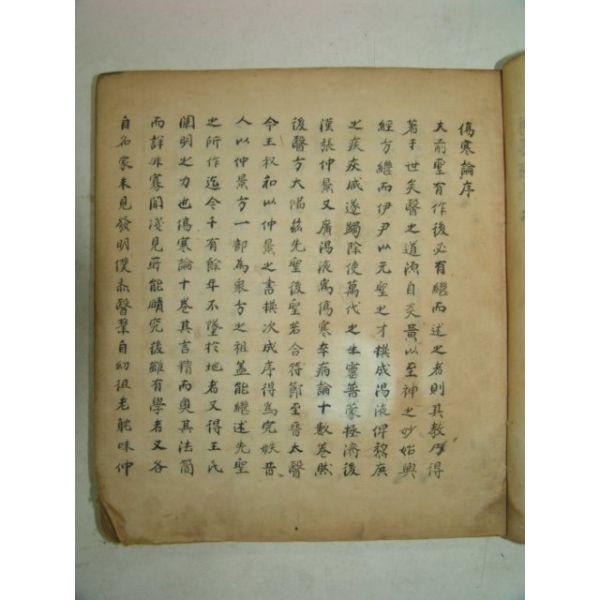 傷寒論序
夫前聖有作後必有繼而述之者則其教乃得
著于世矣醫之道源自炎黃以至神之妙始興
經方繼而伊尹以元聖之才撰成湯液俾黎庶
之疾疚咸遂蠲除使萬代之生靈普蒙拯濟後
漢張仲景又廣湯液爲傷寒卒病論十數卷然
後醫方大備兹先聖後聖若合符節至晉太醫
令王叔和以仲景之書撰次成序得爲完帙昔
人以仲景方一部為衆方之祖蓋能繼述先聖
之所作迄今千有餘年不墜於地者又得王氏
闡明之力也傷寒論十卷其言精而奧其法簡
而詳非寡聞淺見所能賾究後雖有學者又各
自名家未見發明僕忝醫業自幼徂老耽味仲